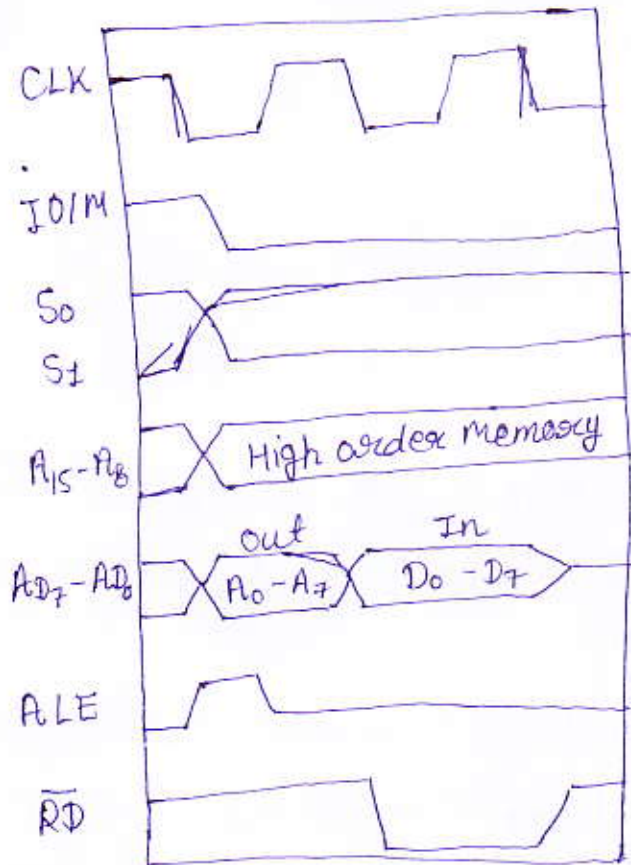 CLK
IO/M
S0
S1
A15-A8
High order memory
Out
In
AD7-AD0
A0-A7
D0-D7
ALE
R̅D̅